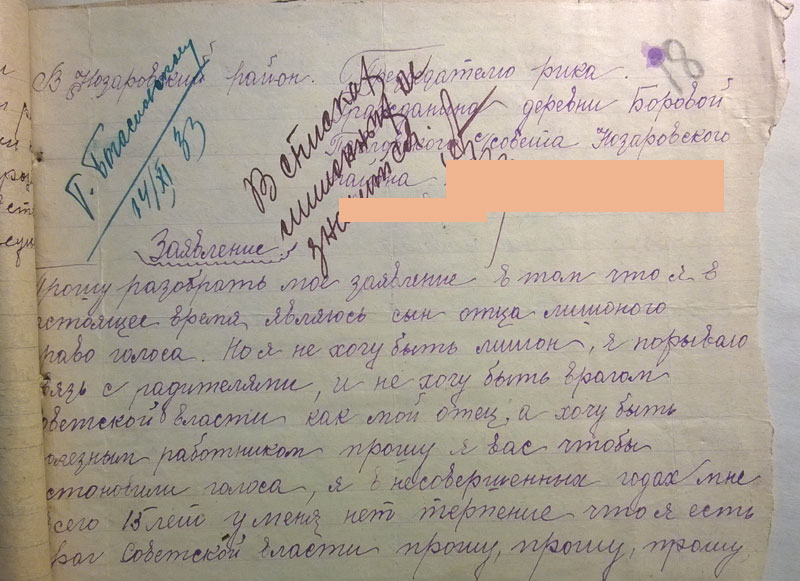 18
В Назаровский район. Председателю рика.
Гражданина деревни Боровой
с/совета Назаровского
района
Г.
14/XI 33
В списках
лишенных
значится
Заявление
Прошу разобрать мое заявление в том что я в
стоящее время являюсь сын отца лишоного
право голоса. Но я не хочу быть лишон, я порываю
вязь с радителями, и не хочу быть врагом
оветской власти как мой отец, а хочу быть
олезным работником прошу я вас чтобы
становили голоса, я в несовершенных годах мне
сего 15 лет у меня нет терпение что я есть
раг Советской власти прошу, прошу, прошу